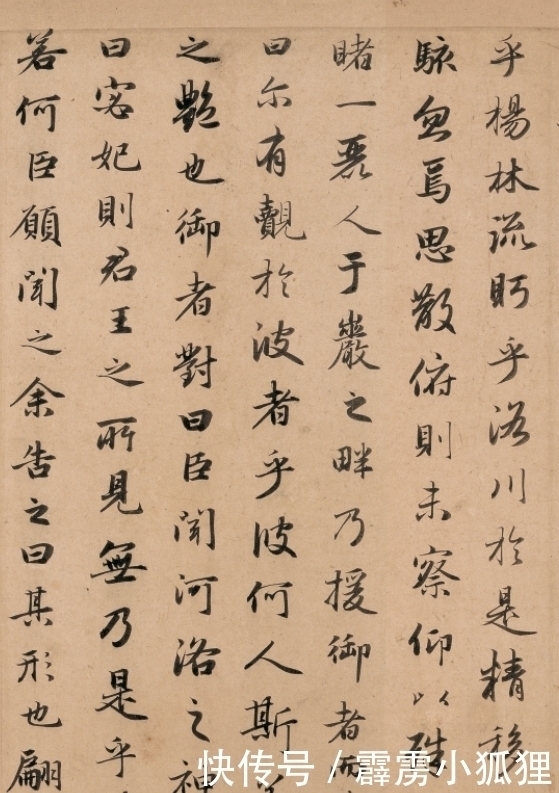 乎楊林流眄乎洛川於是精移
駭忽焉思散俯則未察仰以殊
睹一麗人于巖之畔乃援御者而
曰尔有覿於彼者乎彼何人斯
之艷也御者對曰臣聞河洛之神
曰宓妃則君王之所見無乃是乎
若何臣願聞之余告之曰其形也翩
快传号 / 霹雳小狐狸